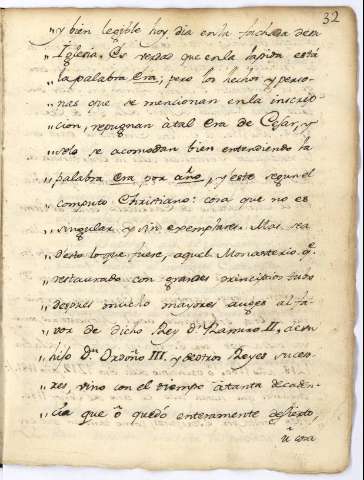 32
" y bien legible hoy dia en la fachada de su
" Iglesia. Es verdad que en la lapida está
" la palabra Era; pero los hechos y perso-
" nas que se mencionan en la inscrip-
" cion, repugnan à tal Era de Cesar, y
" solo se acomodan bien entendiendo la
" palabra Era por año, y este segun el
" computo Christiano: cosa que no es
" singular y sin exemplares. Mas sea
" de esto lo que fuere, aquel Monasterio qe.
" restaurado con grandes principios tubo
" despues mucho mayores auges al fa-
" vor de dicho Rey D. Ramiro II, de su
" hijo Dn. Ordoño III. y de otros Reyes suceso-
" res, vino con el tiempo à tanta decaden-
" cia que ò quedó enteramente desierto,
ù era